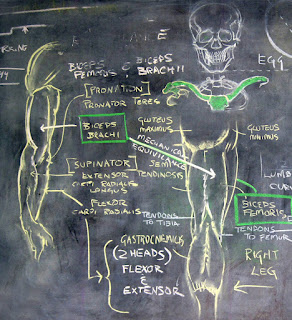 BICEPS
FEMORIS
&
BICEPS
BRACHII
EGG
[PRONATION]
PRONATOR TERES
BICEPS
BRACHI
GLUTEUS
MAXIMUS
GLUTEUS
MINIMUS
MECHANICAL
EQUIVILENCE
[SUPINATOR]
EXTENSOR
CARPI RADIALIS
LONGUS
FLEXOR
CARPI RADIALIS
SEMI
TENDINOSIS
LUMB
CURV
BICEPS
FEMORIS
TENDONS
TO TIBIA
TENDONS
TO FEMUR
GASTROCNEMIUS
(2 HEADS)
FLEXOR
&
EXTENSOR
RIGHT
LEG